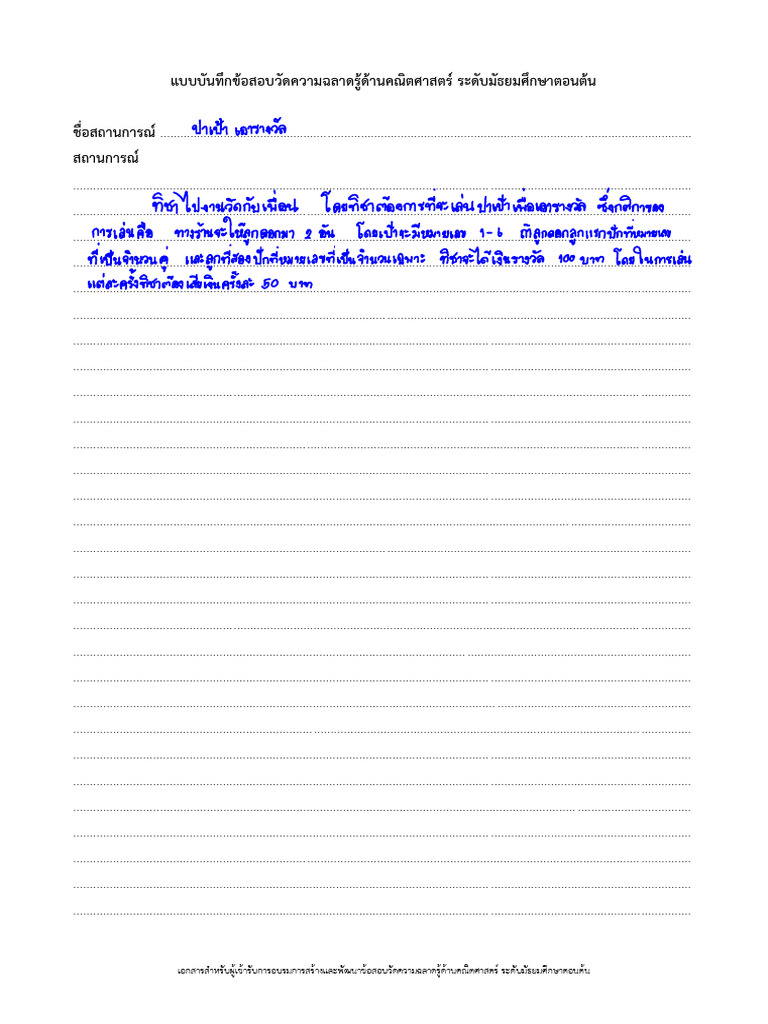 แบบบันทึกข้อสอบวัดความฉลาดรู้ด้านคณิตศาสตร์ ระดับมัธยมศึกษาตอนต้น
ชื่อสถานการณ์ ปาเป้า เอารางวัล
สถานการณ์
ทิชาไปงานวัดกับเพื่อน โดยทิชาต้องการที่จะเล่นปาเป้าเพื่อเอารางวัล ซึ่งกติกาของ
การเล่นคือ ทางร้านจะให้ลูกดอกมา 2 อัน โดยเป้าจะมีหมายเลข 1-6 ถ้าลูกดอกลูกแรกปักที่หมายเลข
ที่เป็นจำนวนคู่ และลูกที่สองปักที่หมายเลขที่เป็นจำนวนเฉพาะ ทิชาจะได้เงินรางวัล 100 บาท โดยในการเล่น
แต่ละครั้งทิชาต้องเสียเงินครั้งละ 50 บาท
เอกสารสำหรับผู้เข้ารับการอบรมการสร้างและพัฒนาข้อสอบวัดความฉลาดรู้ด้านคณิตศาสตร์ ระดับมัธยมศึกษาตอนต้น